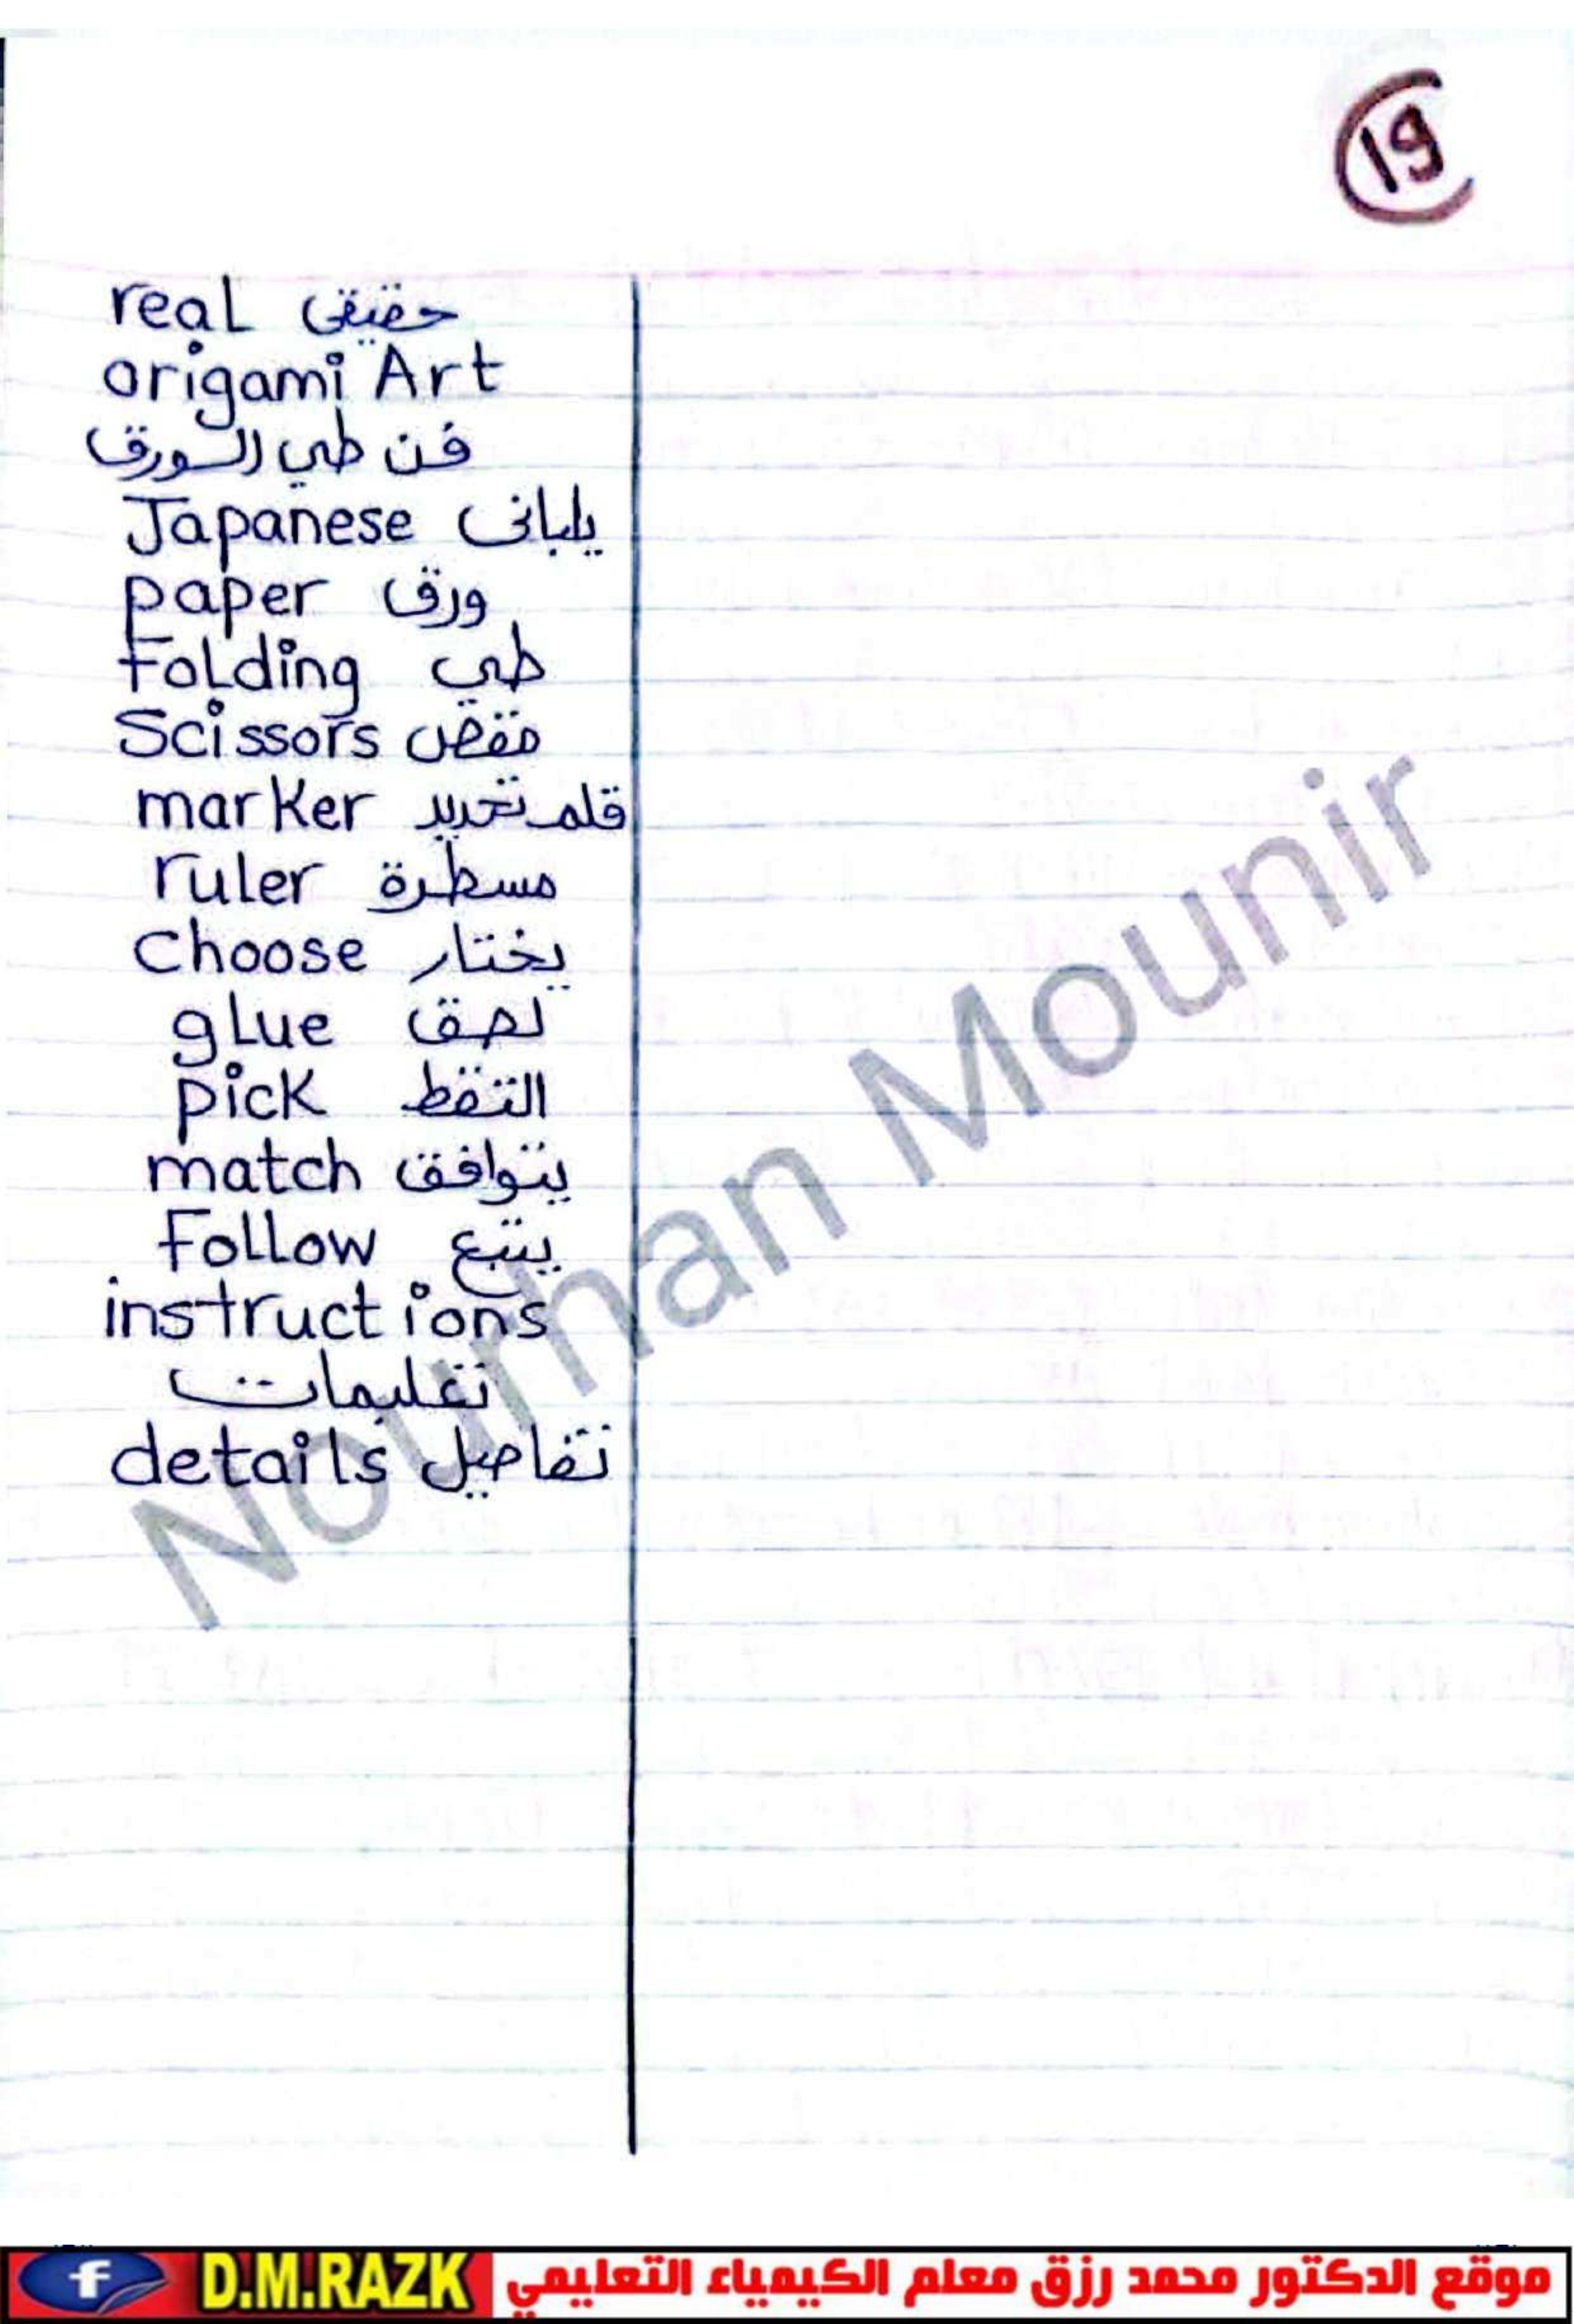 19
real حقيقى
origami Art
فن طي الورق
Japanese ياباني
paper ورق
Folding طي
Scissors مقص
marker قلم تحديد
ruler مسطرة
Choose يختار
glue لصق
pick التقط
match يتوافق
Follow يتبع
instructions
تعليمات
details تفاصيل
Nourhan Mounir
f D.M.RAZK موقع الدكتور محمد رزق معلم الكيمياء التعليمي